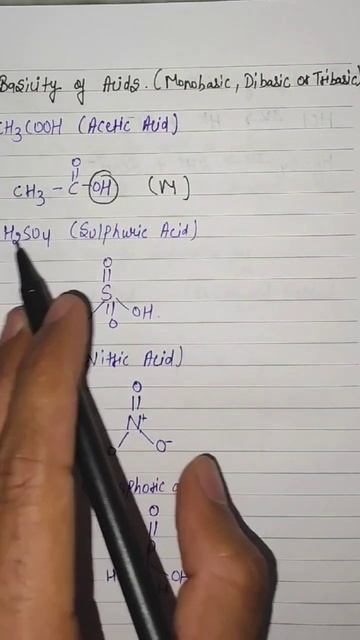 Basicity of Acids. (Monobasic, Dibasic or Tribasic)
CH3COOH (Acetic Acid)
O
CH3 - C - OH (M)
H2SO4 (Sulphuric Acid)
O
S
O OH.
Acid)
O
N+
O-
O
H OH